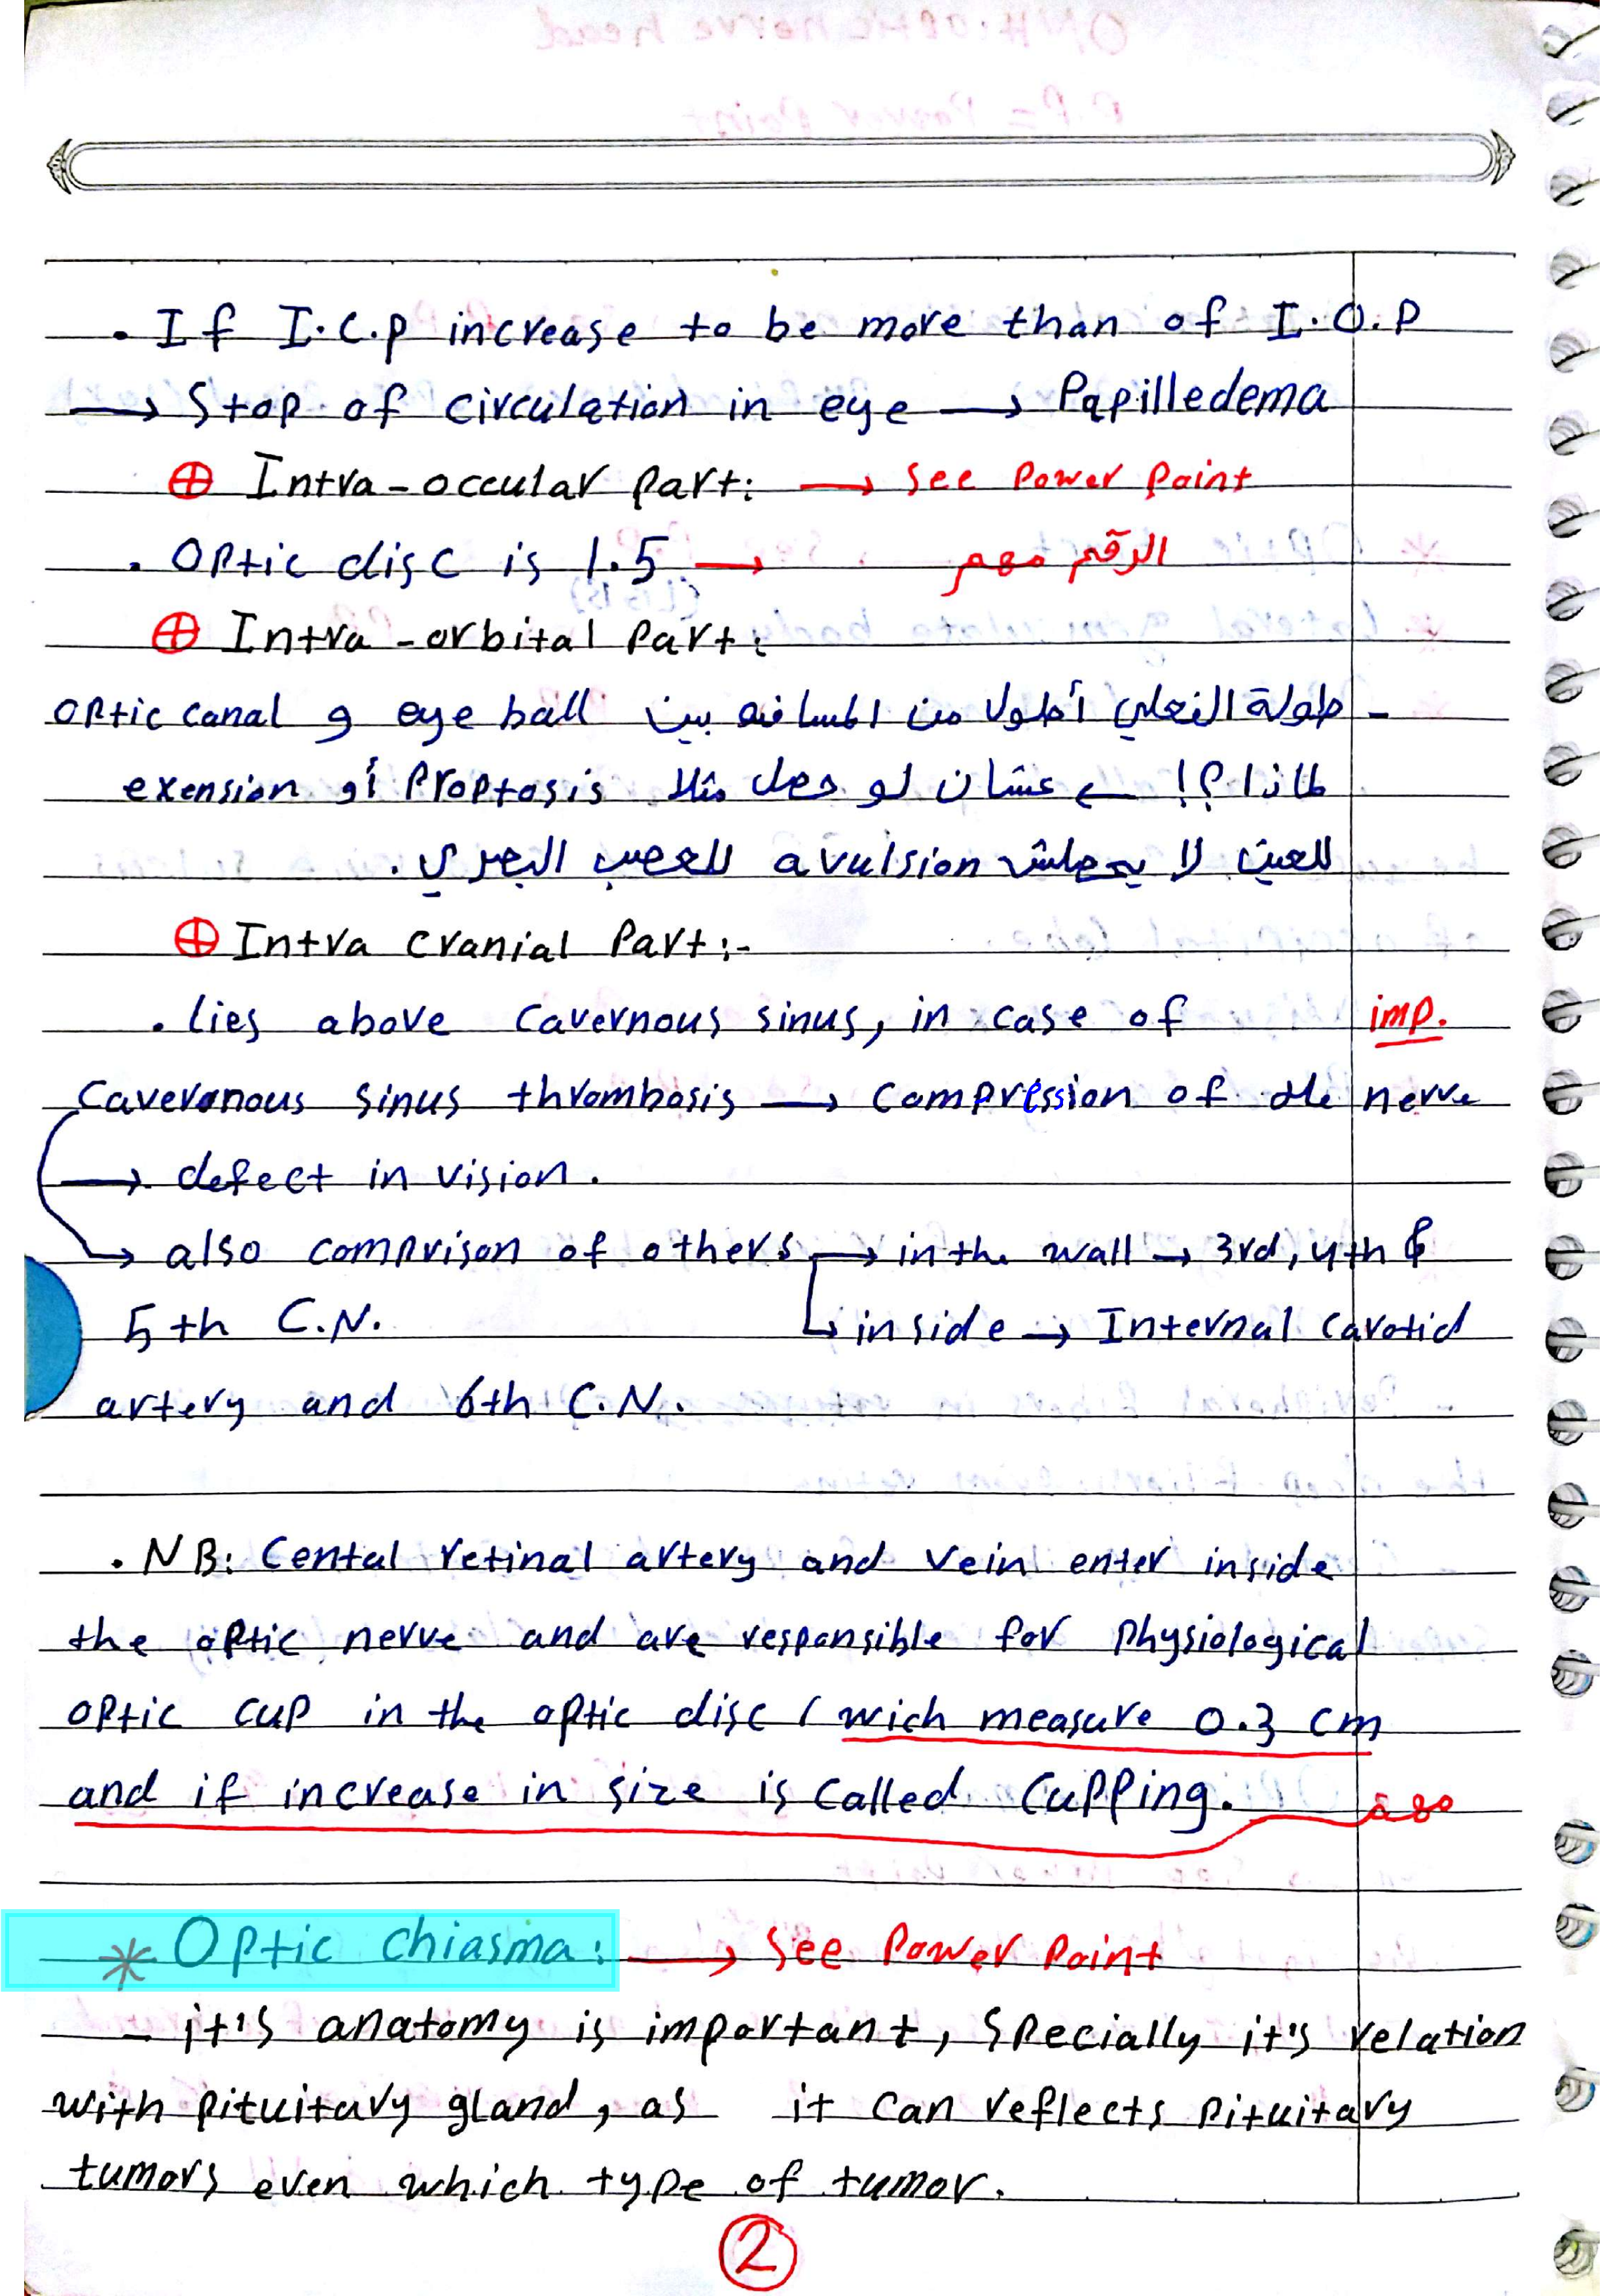 . If I.C.P increase to be more than of I.O.P
→ Stop of circulation in eye → Papilledema
⊕ Intra-occular Part: → See Power Point
. Optic disc is 1.5 → الرقم مهم
⊕ Intra-orbital Part:
- طولة الفعلي أطول من المسافه بين eye ball و optic canal
لماذا؟! ← عشان لو حصل مثلا Proptosis أو exension
للعين لا يحصلش avulsion للعصب البصري .
⊕ Intra cranial Part:-
. lies above cavernous sinus, in case of imp.
Caveronous sinus thrombosis → Compression of the nerve
→ defect in vision.
→ also comprison of others → in the wall → 3rd, 4th &
5th C.N. ↳ inside → Internal carotid
artery and 6th C.N.
. NB: Cental retinal artery and vein enter inside
the optic nerve and are responsible for Physiological
optic cup in the optic disc ( wich measure 0.3 cm
and if increase in size is called Cupping.
* Optic Chiasma: → See Power Point
- it's anatomy is important, specially it's relation
with pituitary gland, as it can reflects pituitary
tumors even which type of tumor.
2